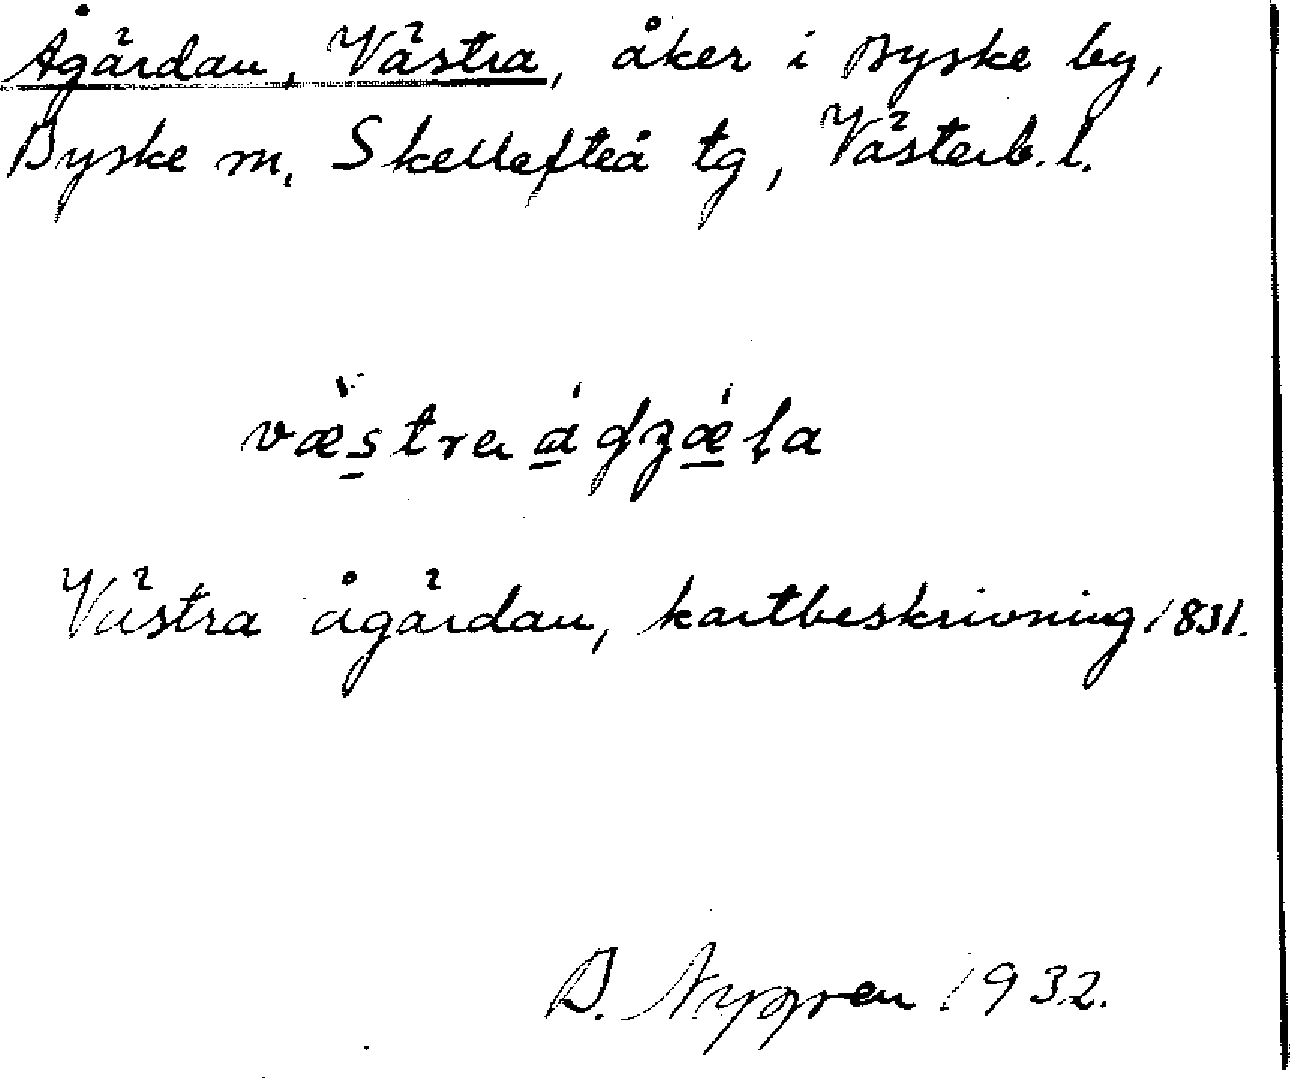 Ågärdan, Västra, åker i Byske by,
Byske m, Skellefteå tg, Västerb. l.
Västra ågärdan, kartbeskrivning 1831.
B. Nygren 1932.